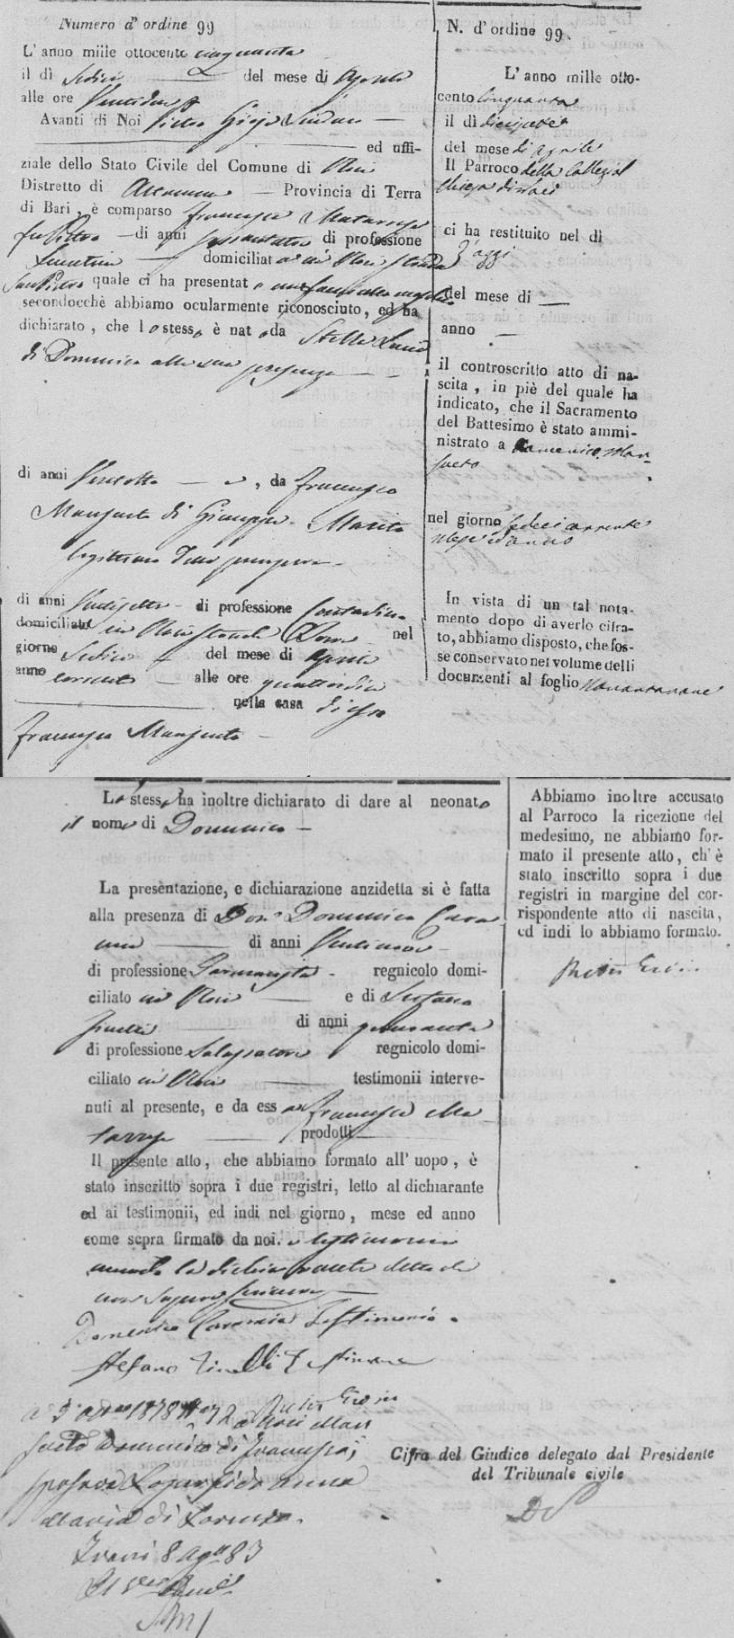 Numero d' ordine 99
L' anno mille ottocento cinquanta
il dì Sedici del mese di Aprile
alle ore Ventidue
Avanti di Noi Pietro Gioja Sindaco
ed uffi-
ziale dello Stato Civile del Comune di Noci
Distretto di Altamura — Provincia di Terra
di Bari, è comparso Francesca Matarrese
fu Pietro di anni sessantatre di professione
domiciliata in Noci strada
San Pietro quale ci ha presentato un fanciullo maschio
secondocchè abbiamo ocularmente riconosciuto, ed ha
dichiarato, che lo stesso è nato da Stella Lucia
di Domenico alla sua presenza
di anni Ventotto, da Francesco
Mansueto di Giuseppe Marito
legittimo
di anni Ventisette di professione Contadino
domiciliato in Noci strada nel
giorno Sedici del mese di Aprile
anno corrente alle ore quattordici
nella casa di essa
Francesco Mansueto
N. d' ordine 99.
L' anno mille otto-
cento Cinquanta
il dì diciasette
del mese di Aprile
Il Parroco della Collegial
Chiesa di Noci
ci ha restituito nel dì
d'oggi
del mese di —
anno —
il controscritto atto di na-
scita, in piè del quale ha
indicato, che il Sacramento
del Battesimo è stato ammi-
nistrato a Domenico Man-
sueto
nel giorno sedici corrente
mese ed anno
In vista di un tal nota-
mento dopo di averlo cifra-
to, abbiamo disposto, che fos-
se conservato nel volume delli
documenti al foglio Novantanove
Lo stesso ha inoltre dichiarato di dare al neonato
il nome di Domenico —
La presentazione, e dichiarazione anzidetta si è fatta
alla presenza di Don Domenico Cara
di anni Ventinove
di professione Farmacista regnicolo domi-
ciliato in Noci e di Stefano
Tinelli di anni quaranta
di professione Salassatore regnicolo domi-
ciliato in Noci testimonii interve-
nuti al presente, e da essa Francesca Ma
tarrese prodotti
Il presente atto, che abbiamo formato all' uopo, è
stato inscritto sopra i due registri, letto al dichiarante
ed ai testimonii, ed indi nel giorno, mese ed anno
come sopra firmato da noi. e testimonii
avendo la dichiarante detto di
non saper scrivere
Domenico Testimonio.
Stefano Tinelli Testimone
Abbiamo inoltre accusato
al Parroco la ricezione del
medesimo, ne abbiamo for-
mato il presente atto, ch' è
stato inscritto sopra i due
registri in margine del cor-
rispondente atto di nascita,
ed indi lo abbiamo formato.
a 3 1878 N° 72 a Noci Man
sueto Domenico di Francesco,
sposava Anna
Maria di Lorenzo.
Trani 8 Ag. 83
Cifra del Giudice delegato dal Presidente
del Tribunale civile